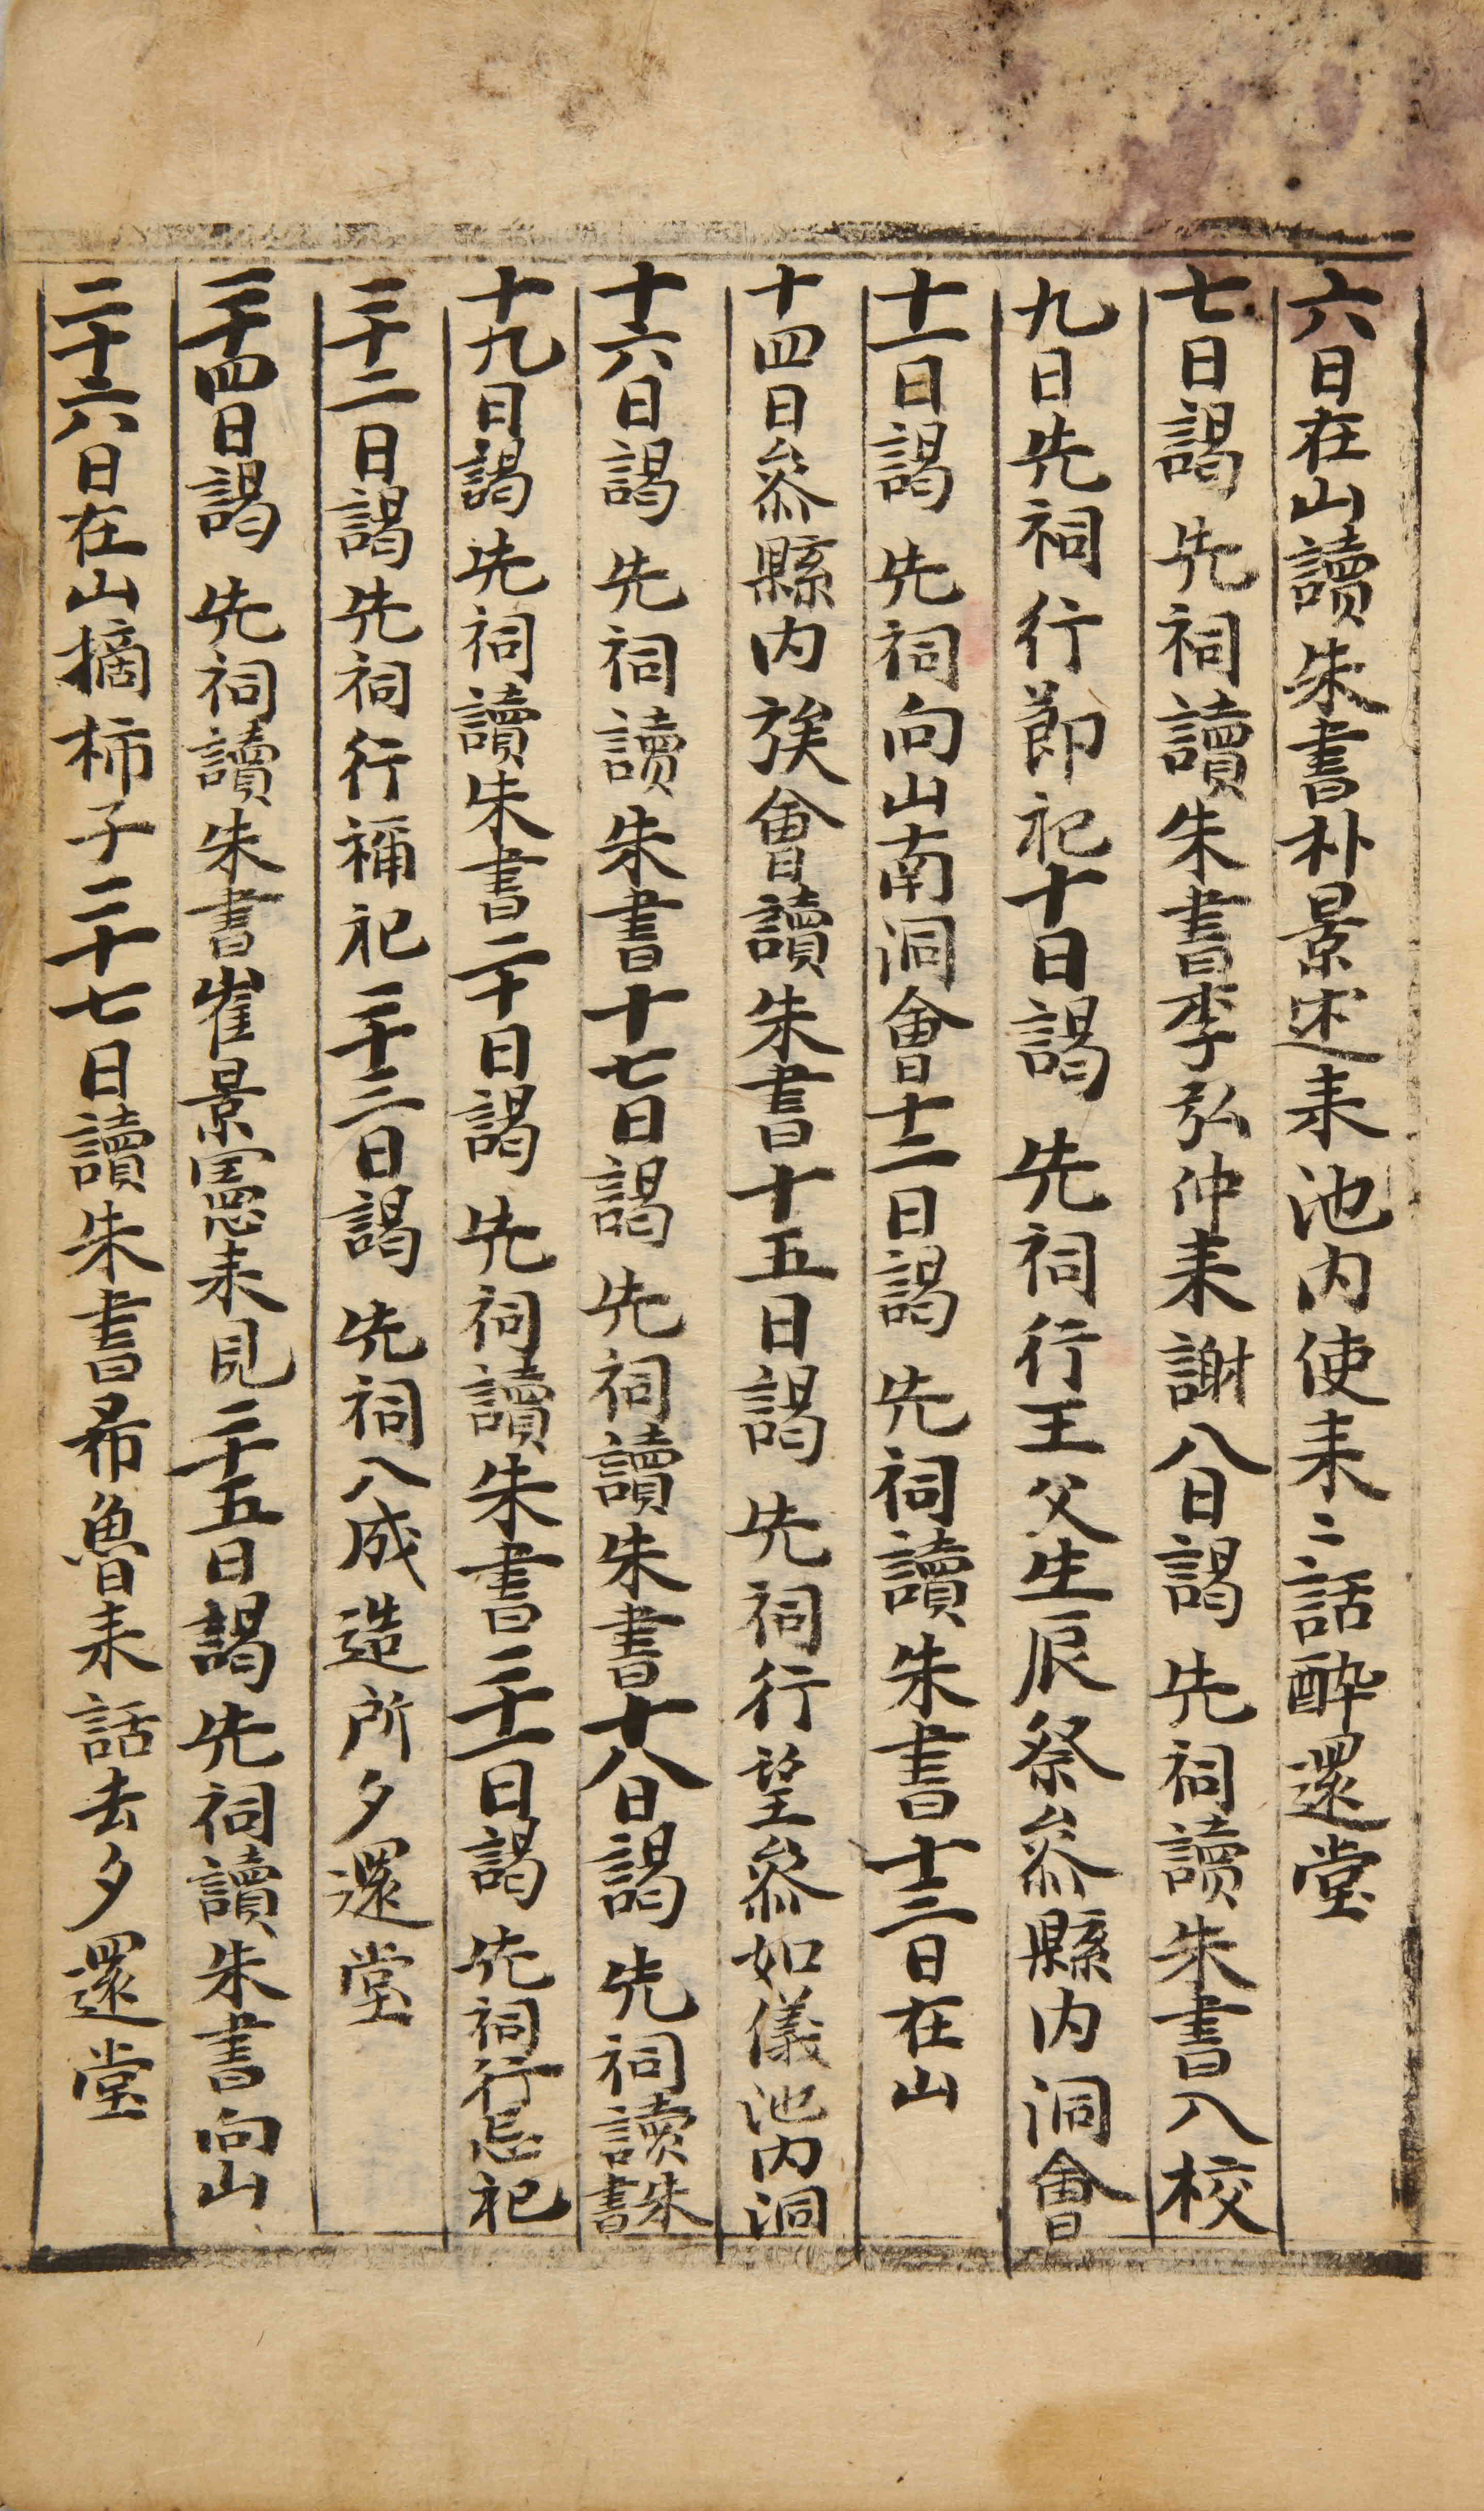 六日在山讀朱書朴景述来池内使来〻話醉還堂
七日謁 先祠讀朱書李弘仲来謝八日謁 先祠讀朱書入校
九日先祠行節祀十日謁 先祠行王父生辰祭叅縣内洞會
十一日謁 先祠向山南洞會十二日謁 先祠讀朱書十三日在山
十四日叅縣内族會讀朱書十五日謁 先祠行望叅如儀池内洞
十六日謁 先祠讀朱書十七日謁 先祠讀朱書十八日謁 先祠讀朱書
十九日謁 先祠讀朱書二十日謁 先祠讀朱書二十一日謁 先祠行忌祀
二十二日謁先祠行禰祀二十三日謁 先祠入成造所夕還堂
二十四日謁 先祠讀朱書崔景憲来見二十五日謁先祠讀朱書向山
二十六日在山摘柿子二十七日讀朱書希魯来話去夕還堂